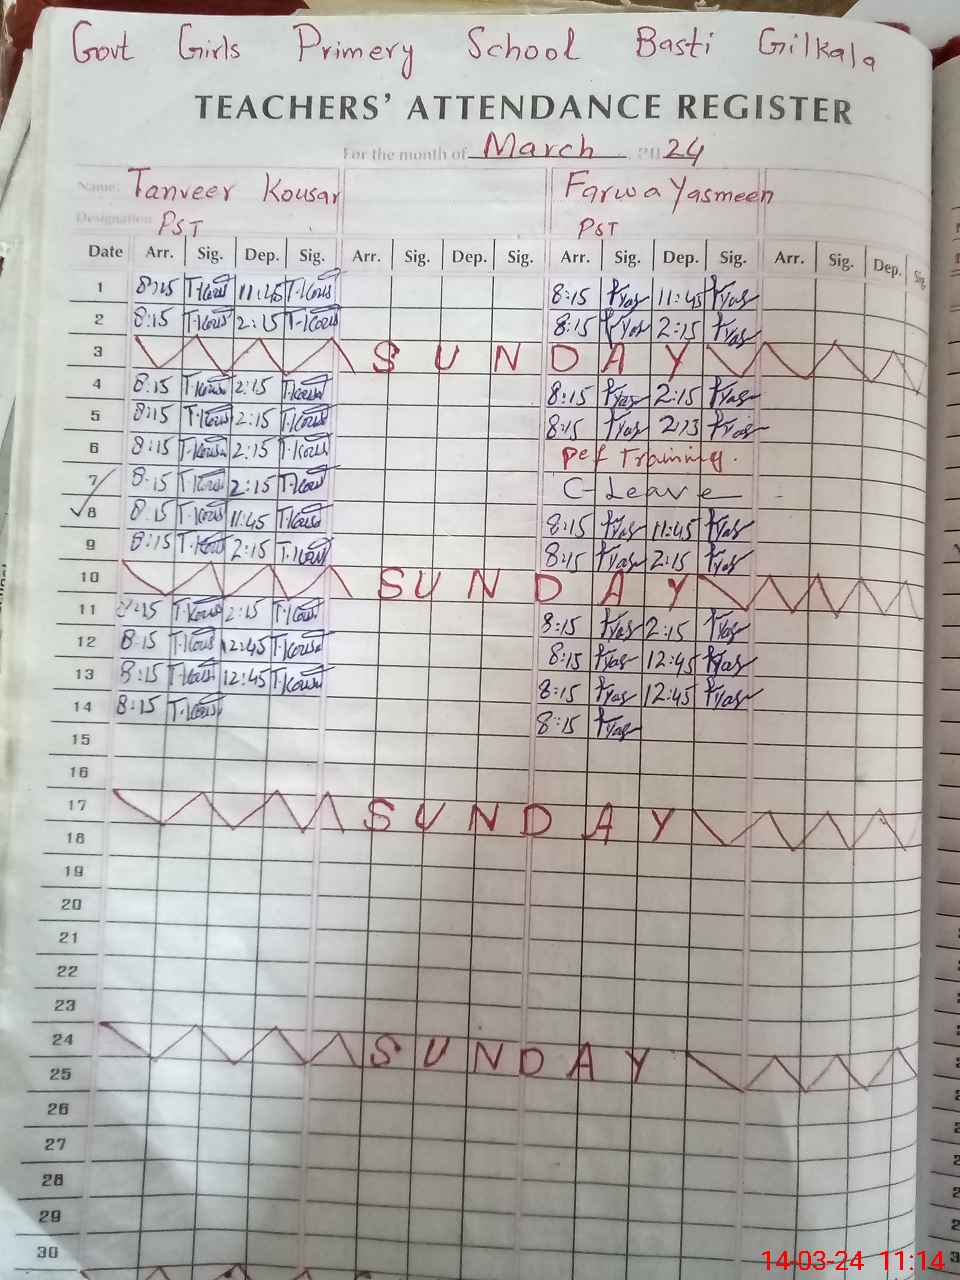 Govt Girls Primery School Basti Gilkala
TEACHERS' ATTENDANCE REGISTER
For the month of March 2024
Name: Tanveer Kousar Farwa Yasmeen
Designation PST PST
Date Arr. Sig. Dep. Sig. Arr. Sig. Dep. Sig. Arr. Sig. Dep. Sig. Arr. Sig. Dep. Sig
1 8:15 T.Kous 11:45 T.Kous 8:15 fYas 11:45 fYas
2 8:15 T.Kous 2:15 T.Kous 8:15 fYas 2:15 fYas
3 SUNDAY
4 8:15 T.Kous 2:15 T.Kous 8:15 fYas 2:15 fYas
5 8:15 T.Kous 2:15 T.Kous 8:15 fYas fYas
6 8:15 T.Kous 2:15 T.Kous Pef Training.
7 8:15 T.Kous 2:15 T.Kous C-Leave
8 8:15 T.Kous 11:45 T.Kous 8:15 fYas 11:45 fYas
9 8:15 T.Kous 2:15 T.Kous 8:15 fYas 2:15 fYas
10 SUNDAY
11 8:15 T.Kous 2:15 T.Kous 8:15 fYas 2:15 fYas
12 8:15 T.Kous 12:45 T.Kous 8:15 fYas 12:45 fYas
13 8:15 T.Kous 12:45 T.Kous 8:15 fYas 12:45 fYas
14 8:15 T.Kous 8:15 fYas
15
16
17 SUNDAY
18
19
20
21
22
23
24 SUNDAY
25
26
27
28
29
30
14-03-24 11:14